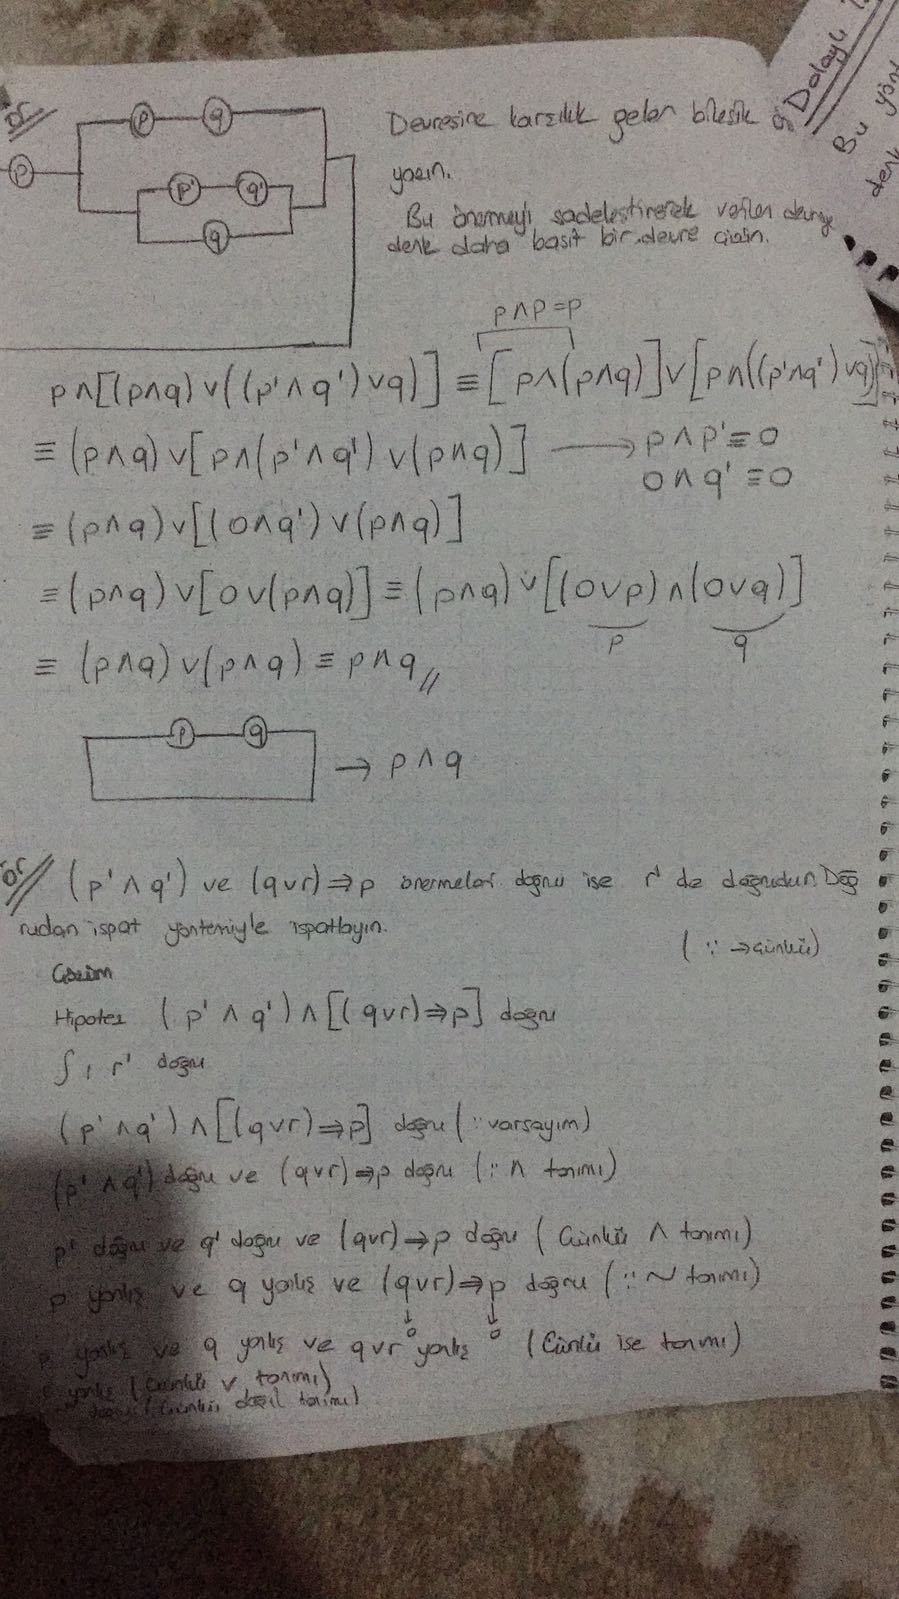 ör//
p
p q
p' q'
q
Devresine karşılık gelen bileşik
yazın.
Bu önermeyi sadeleştirerek verilen devreye
denk daha basit bir devre çizin.
Dolaylı
Bu yönt
denk
p∧p=p
p∧[(p∧q)∨((p'∧q')∨q)] ≡ [p∧(p∧q)]∨[p∧((p'∧q')∨q)]
≡ (p∧q)∨[p∧(p'∧q')∨(p∧q)] → p∧p'≡0
0∧q'≡0
≡ (p∧q)∨[(0∧q')∨(p∧q)]
≡ (p∧q)∨[0∨(p∧q)] ≡ (p∧q)∨[(0∨p)∧(0∨q)]
p q
≡ (p∧q)∨(p∧q) ≡ p∧q//
p q → p∧q
ör// (p'∧q') ve (q∨r)⇒p önermeleri doğru ise r' de doğrudur. Doğ
rudan ispat yöntemiyle ispatlayın.
(∵ → çünkü)
Çözüm
Hipotez (p'∧q')∧[(q∨r)⇒p] doğru
r' doğru
(p'∧q')∧[(q∨r)⇒p] doğru (∵ varsayım)
(p'∧q') doğru ve (q∨r)⇒p doğru (∵ ∧ tanımı)
p' doğru ve q' doğru ve (q∨r)⇒p doğru (Çünkü ∧ tanımı)
p yanlış ve q yanlış ve (q∨r)⇒p doğru (∵ ~ tanımı)
↓ ↓
0 0
p yanlış ve q yanlış ve q∨r yanlış (Çünkü ise tanımı)
yanlış (Çünkü ∨ tanımı)
(Çünkü değil tanımı)